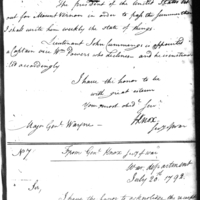 The President of the United States sets
out for Mount Vernon in order to pass the summer &
I shall write him weekly the state of things
Lieutenant John Cummings is appointed
a Captain vice Wm Powers who declines and he is
accordingly
I have the honor to be
with great esteem
Your most obed Ser
HKnox
Secy of War
Major Genl Wayne
No 7 From Genl Knox Secy of War
War department
July 20th 1792.
Sir,
I have the honor to acknowledge the receipt